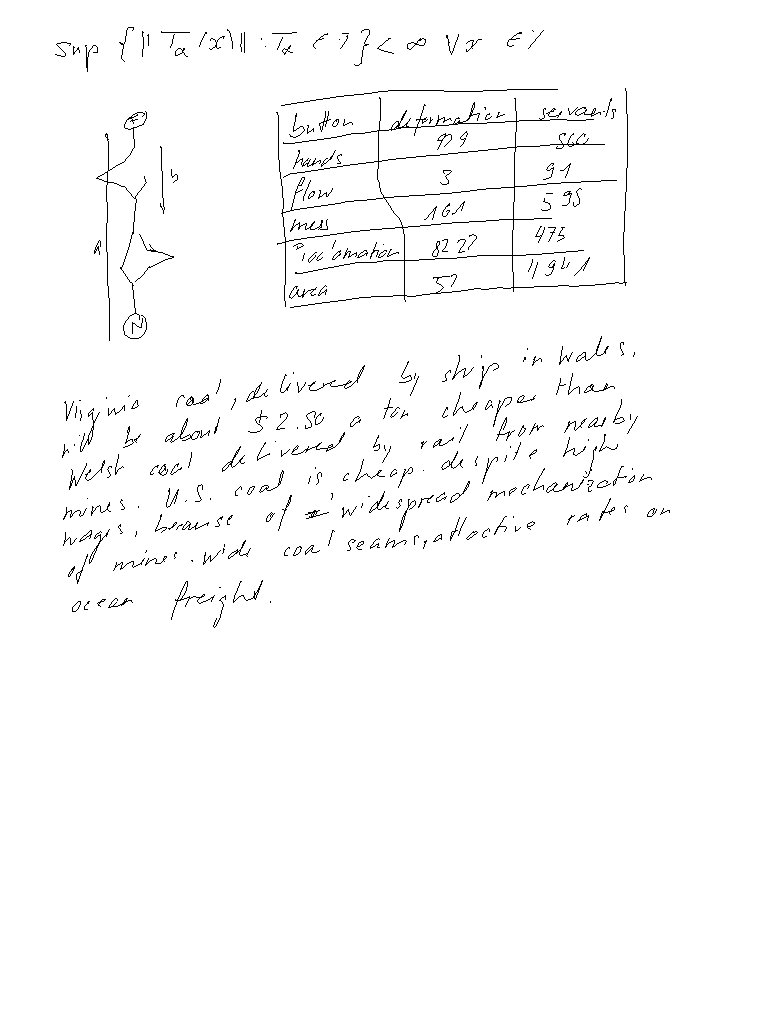 sup {‖ T_α (x)‖ : T_α ∈ } < ∞ ∀x ∈
button deformation servants
hands 939 560
flow 3 91
mess 161 595
Proclamation 8222 473
area 52 4941
A b
N
Virginia coal, delivered by ship in Wales,
will be about $2.50 a ton cheaper than
Welsh coal delivered by rail from nearby
mines. U.S. coal is cheap. despite high
wages, because of widespread mechanization
of mines. wide coal seams, attractive rates on
ocean freight.